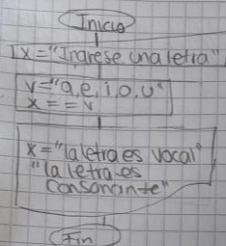 Inicio
IX="Ingrese una letra"
V="a,e,i,o,u"
X==V
X="la letra es vocal"
"la letra es
consonante"
Fin